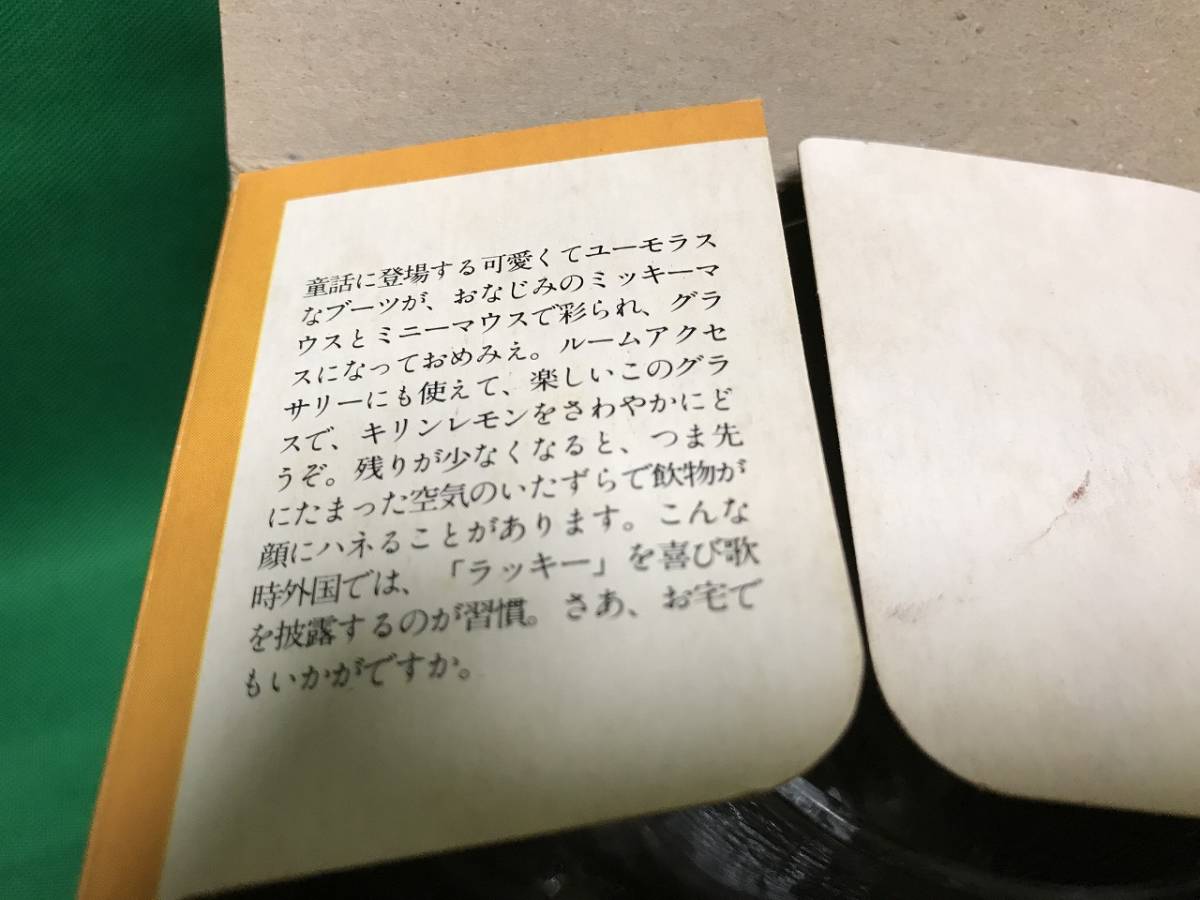 童話に登場する可愛くてユーモラス
なブーツが、おなじみのミッキーマ
ウスとミニーマウスで彩られ、グラ
スになっておめみえ。ルームアクセ
サリーにも使えて、楽しいこのグラ
スで、キリンレモンをさわやかにど
うぞ。残りが少なくなると、つま先
にたまった空気のいたずらで飲物が
顔にハネることがあります。こんな
時外国では、「ラッキー」を喜び歌
を披露するのが習慣。さあ、お宅で
もいかがですか。